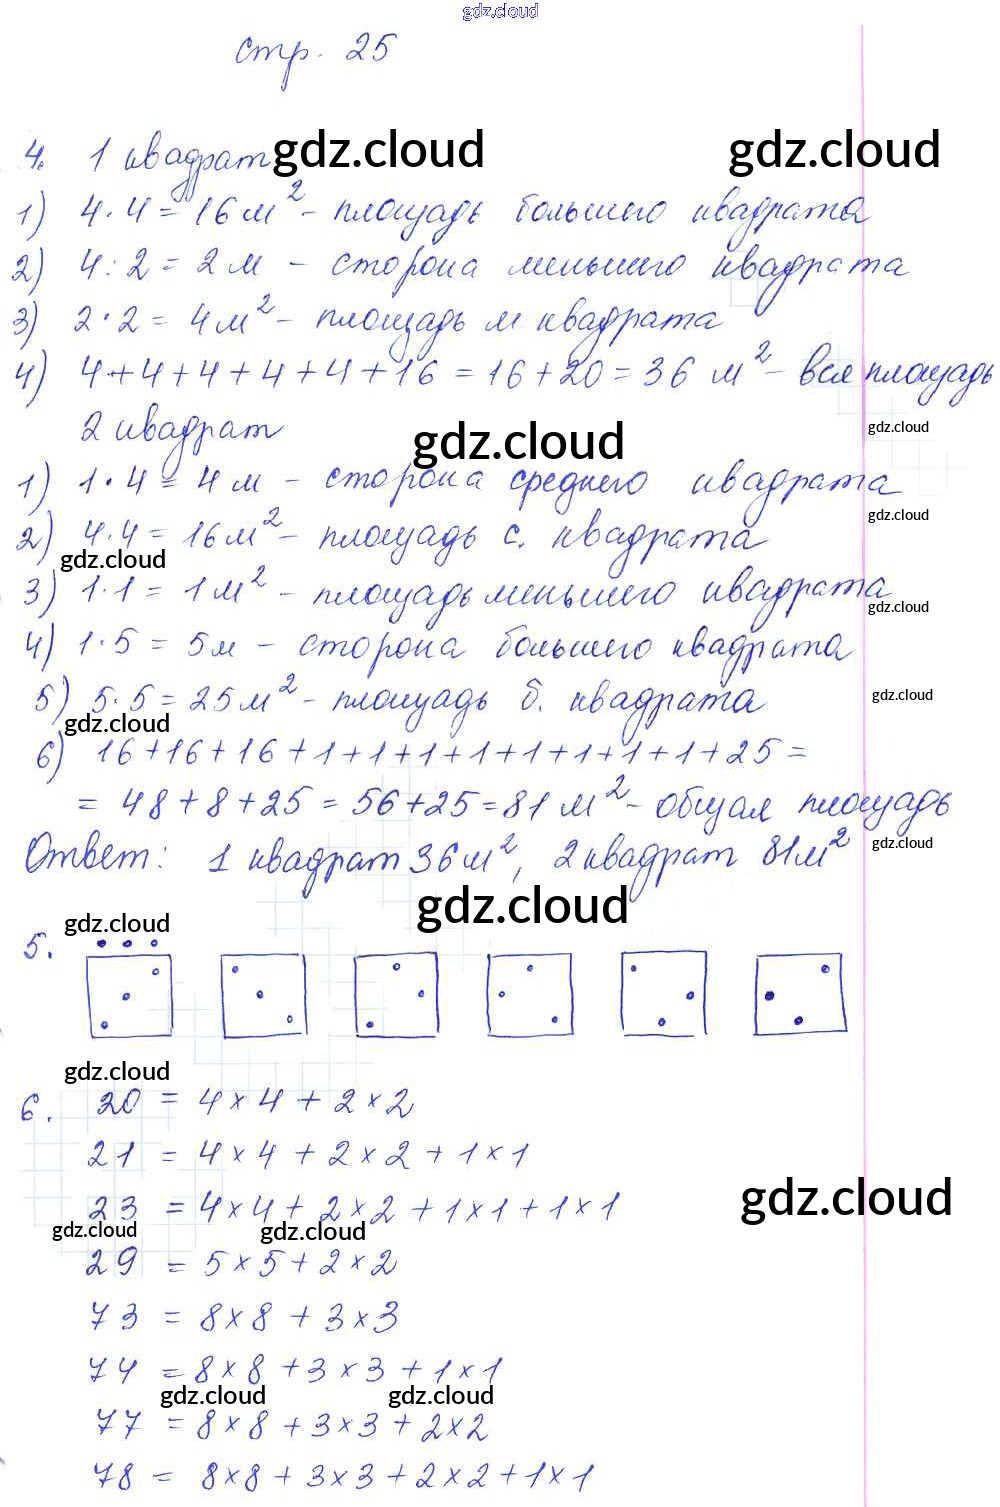 gdz.cloud
стр. 25
4. 1 квадрат gdz.cloud gdz.cloud
1) 4·4=16м²- площадь большего квадрата
2) 4:2=2м - сторона меньшего квадрата
3) 2·2=4м²- площадь м квадрата
4) 4+4+4+4+4+16=16+20=36 м²- вся площадь
2 квадрат gdz.cloud gdz.cloud
1) 1·4=4м - сторона среднего квадрата
gdz.cloud
2) 4·4=16м²- площадь с. квадрата
gdz.cloud
3) 1·1=1м² - площадь меньшего квадрата
gdz.cloud
4) 1·5=5м - сторона большего квадрата
5) 5·5=25м²- площадь б. квадрата
gdz.cloud gdz.cloud
6) 16+16+16+1+1+1+1+1+1+1+1+25=
= 48+8+25=56+25=81м²- общая площадь
Ответ: 1 квадрат 36м², 2 квадрат 81м²
gdz.cloud
gdz.cloud gdz.cloud
5.
gdz.cloud
6. 20 = 4×4+2×2
21 = 4×4+2×2+1×1
23 = 4×4+2×2+1×1+1×1
gdz.cloud
gdz.cloud gdz.cloud
29 = 5×5+2×2
73 = 8×8+3×3
74 = 8×8+3×3+1×1
gdz.cloud gdz.cloud
77 = 8×8+3×3+2×2
78 = 8×8+3×3+2×2+1×1